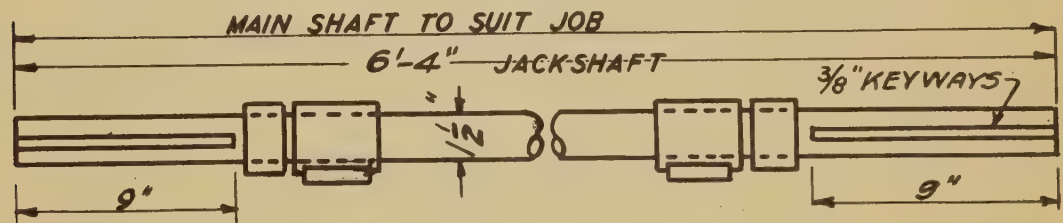 MAIN SHAFT TO SUIT JOB
6'-4" JACK-SHAFT
3/8" KEYWAYS
1 1/2"
9"
9"